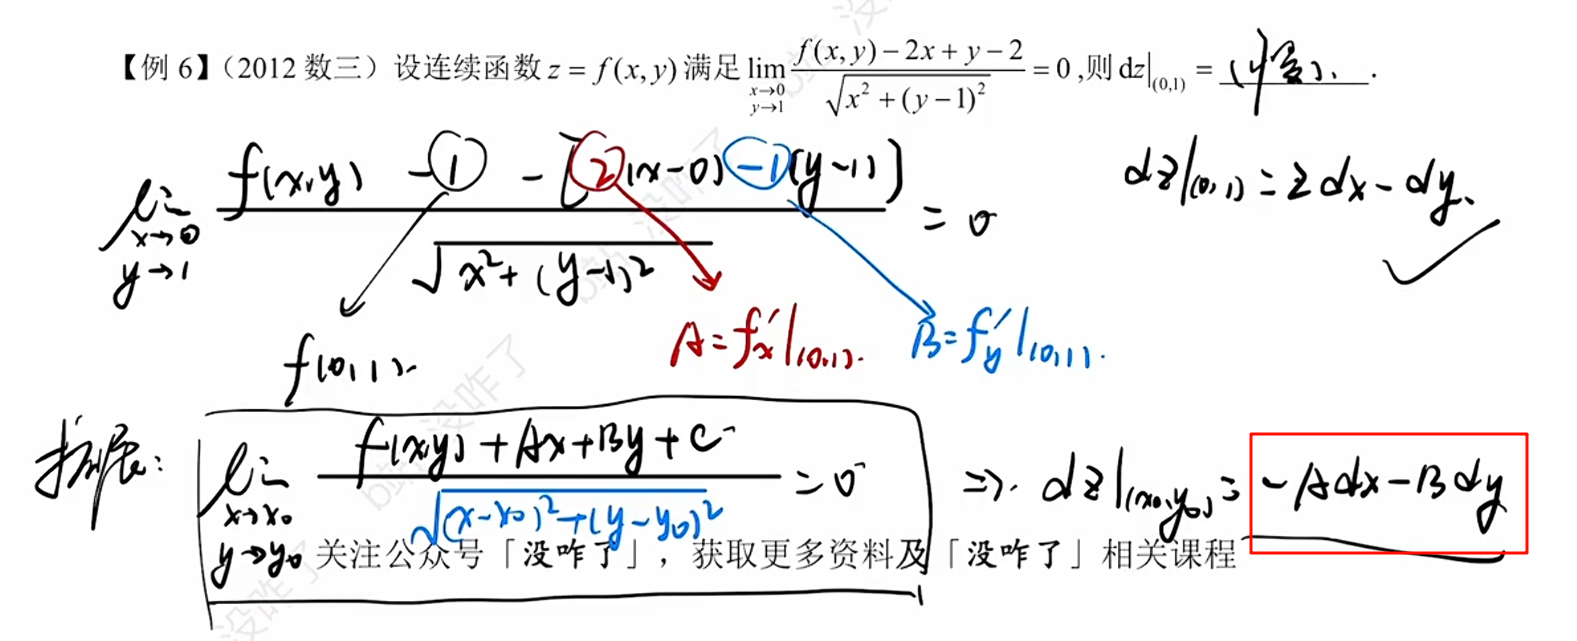 【例 6】(2012 数三) 设连续函数 z = f(x, y) 满足 lim_{x→0, y→1} (f(x, y) − 2x + y − 2)/√(x² + (y − 1)²) = 0 ,则 dz|_(0,1) = ______.
lim_{x→0, y→1} (f(x,y) − 1 − [2(x−0) −1(y−1)])/√(x²+(y−1)²) = 0
dz|(0,1) = 2dx − dy.
f(0,1).
A = f′x|(0,1).
B = f′y|(0,1).
扩展:
lim_{x→x0, y→y0} (f(x,y) + Ax + By + C)/√((x−x0)²+(y−y0)²) = 0 ⇒ dz|(x0,y0) = −Adx − Bdy
关注公众号「没咋了」，获取更多资料及「没咋了」相关课程